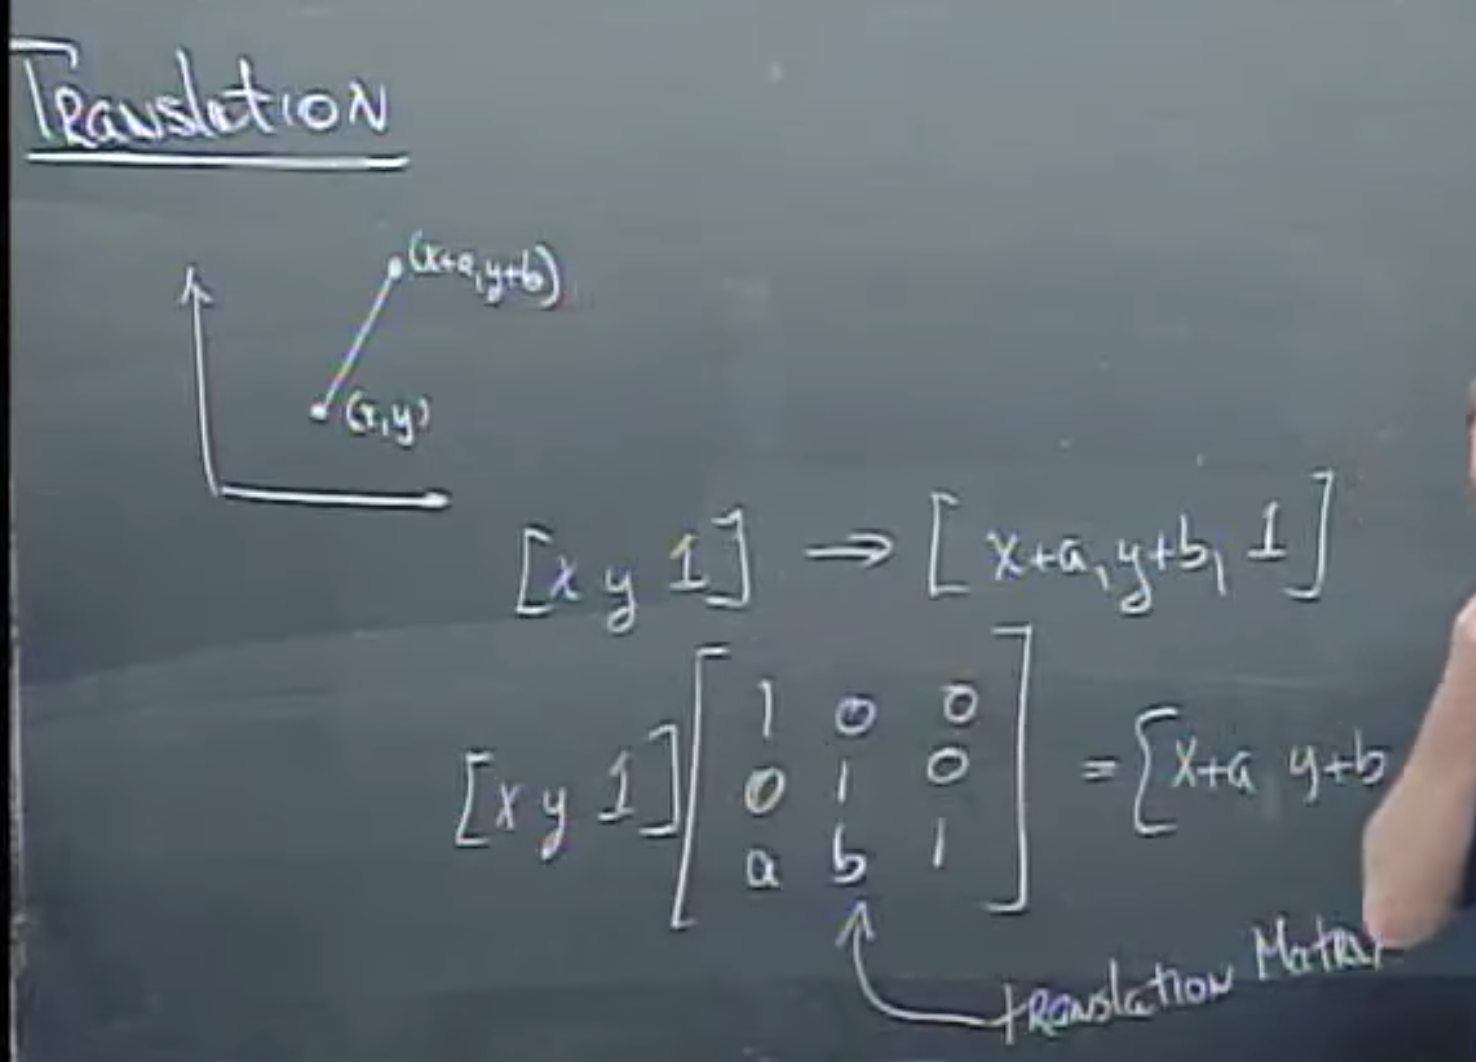 Translation
(x+a,y+b)
(x,y)
[x y 1] ⇒ [x+a, y+b, 1]
[x y 1] [1 0 0
0 1 0
a b 1] = [x+a y+b
translation Matrix